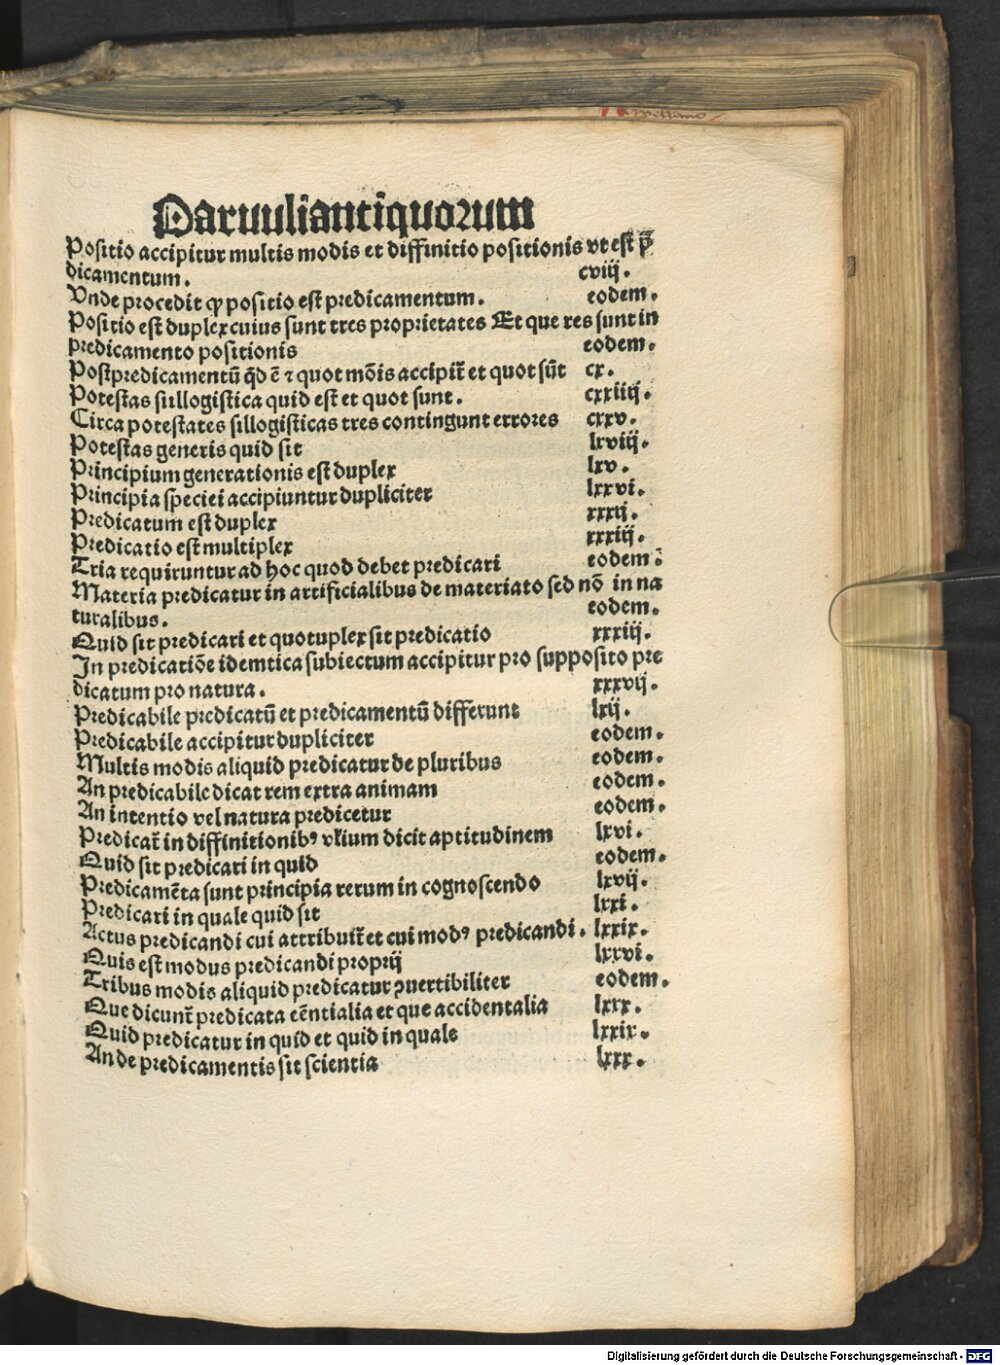 Paruuliantiquorum
Positio accipitur multis modis et diffinitio positionis vt est p̄
dicamentum. cviij.
Vnde procedit ꝙ positio est predicamentum. eodem.
Positio est duplex cuius sunt tres proprietates Et que res sunt in
predicamento positionis eodem.
Postpredicamentū qd ē ⁊ quot mōis accipit̄ et quot sūt cx.
Potestas sullogistica quid est et quot sunt. cxxiiij.
Circa potestates sillogisticas tres contingunt errores cxxv.
Potestas generis quid sit lxviij.
Principium generationis est duplex lxv.
Principia speciei accipiuntur dupliciter lxxvi.
Predicatum est duplex xxxij.
Predicatio est multiplex xxxiij.
Tria requiruntur ad hoc quod debet predicari eodem.
Materia predicatur in artificialibus de materiato sed nō in na
turalibus. eodem.
Quid sit predicari et quotuplex sit predicatio xxxiij.
In predicatiōe idemtica subiectum accipitur pro supposito pre
dicatum pro natura. xxxvij.
Predicabile predicatū et predicamentū differunt lxij.
Predicabile accipitur dupliciter eodem.
Multis modis aliquid predicatur de pluribus eodem.
An predicabile dicat rem extra animam eodem.
An intentio vel natura predicetur eodem.
Predicat̄ in diffinitionibꝰ vlium dicit aptitudinem lxvi.
Quid sit predicari in quid eodem.
Predicamēta sunt principia rerum in cognoscendo lxvij.
Predicari in quale quid sit lxxi.
Actus predicandi cui attribuit̄ et cui modꝰ predicandi. lxxix.
Quis est modus predicandi proprij lxxvi.
Tribus modis aliquid predicatur ꝯuertibiliter eodem.
Que dicunt̄ predicata eēntialia et que accidentalia lxxx.
Quid predicatur in quid et quid in quale lxxix.
An de predicamentis sit scientia lxxx.
Digitalisierung gefördert durch die Deutsche Forschungsgemeinschaft - DFG